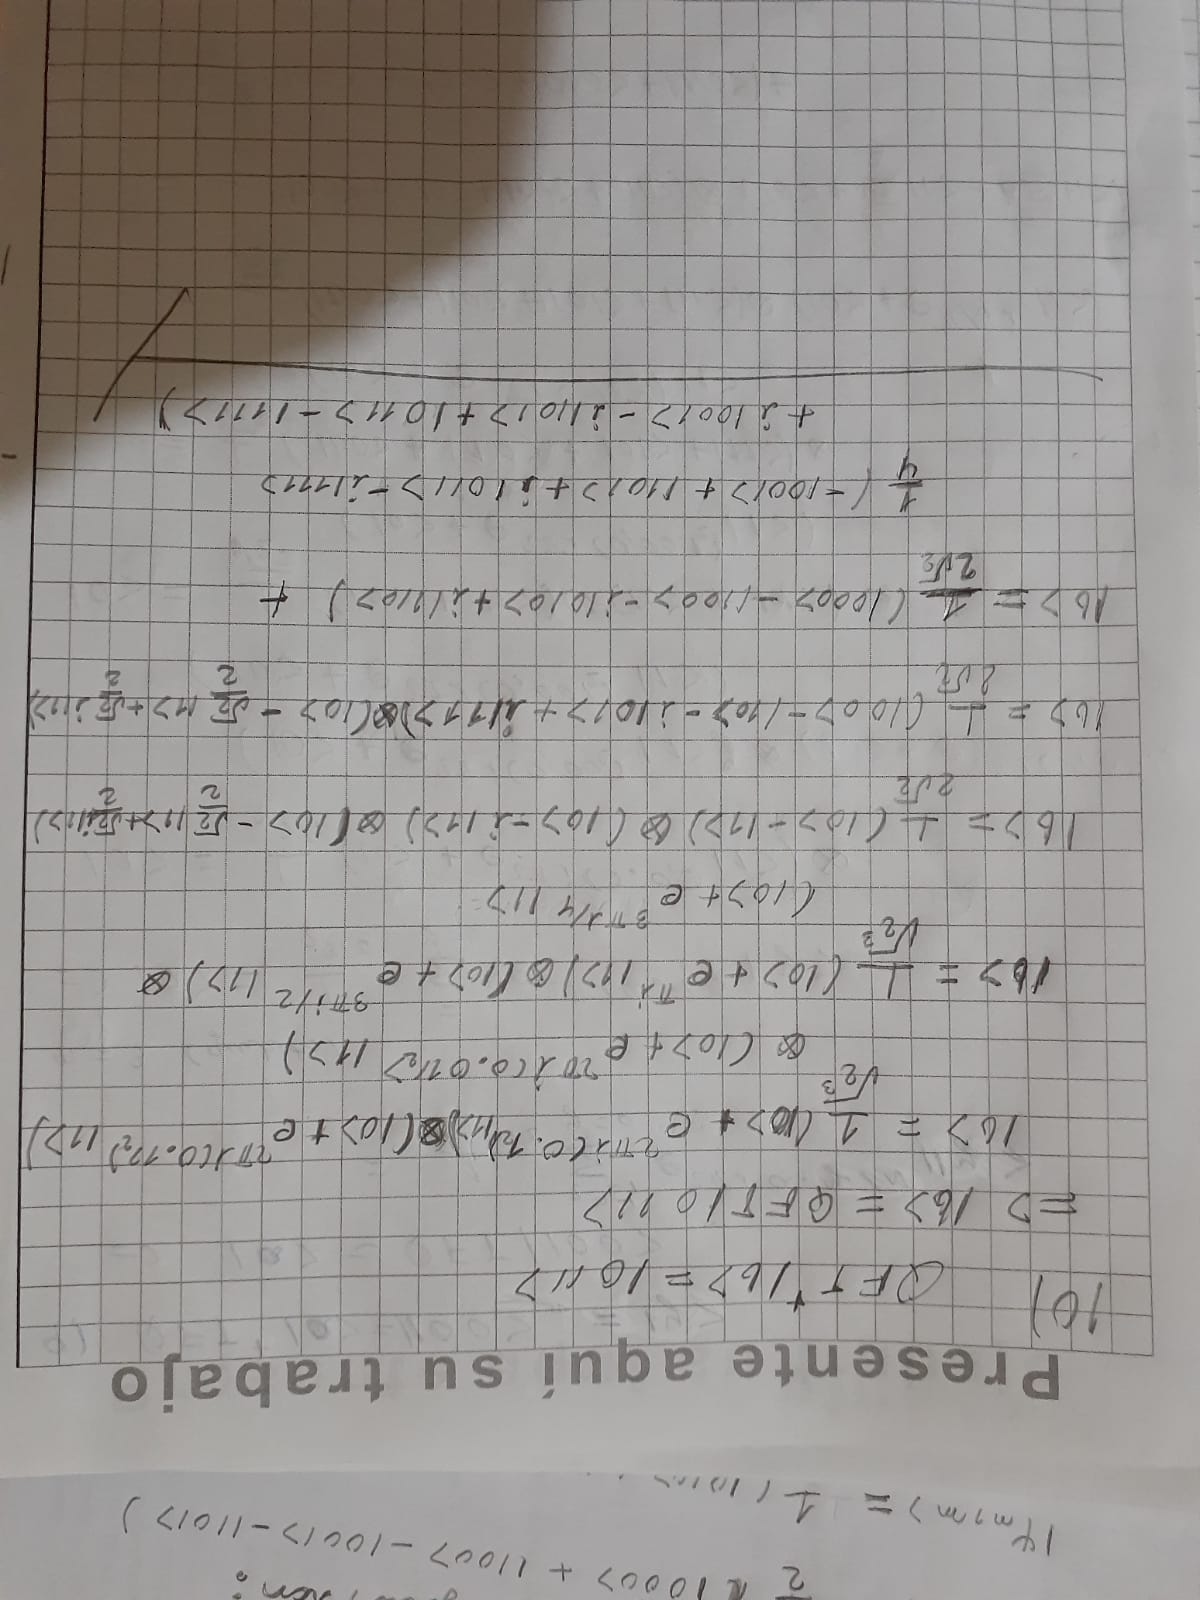 1/2 (|000> + |100> - |001> - |101>)
|Ψm,m> = 1
Presente aquí su trabajo
10)
QFT⁺|b> = |011>
=> |b> = QFT|011>
|b> = 1/√2³ (|0> + e^2πi(0.1₂)|1>) ⊗ (|0> + e^2πi(0.11₂)|1>)
⊗ (|0> + e^2πi(0.011₂)|1>)
|b> = 1/√2³ (|0> + e^πi|1>) ⊗ (|0> + e^3πi/2|1>) ⊗
(|0> + e^3πi/4|1>
|b> = 1/2√2 (|0> - |1>) ⊗ (|0> - i|1>) ⊗ (|0> - √2/2|1> + √2/2 i|1>)
|b> = 1/2√2 (|00> - |10> - i|01> + i|11>) ⊗ (|0> - √2/2|1> + √2/2 i|1>)
|b> = 1/2√2 (|000> - |100> - i|010> + i|110>) +
1/4 (-|001> + |101> + i|011> - i|111>
+ i|001> - i|101> + |011> - |111>)